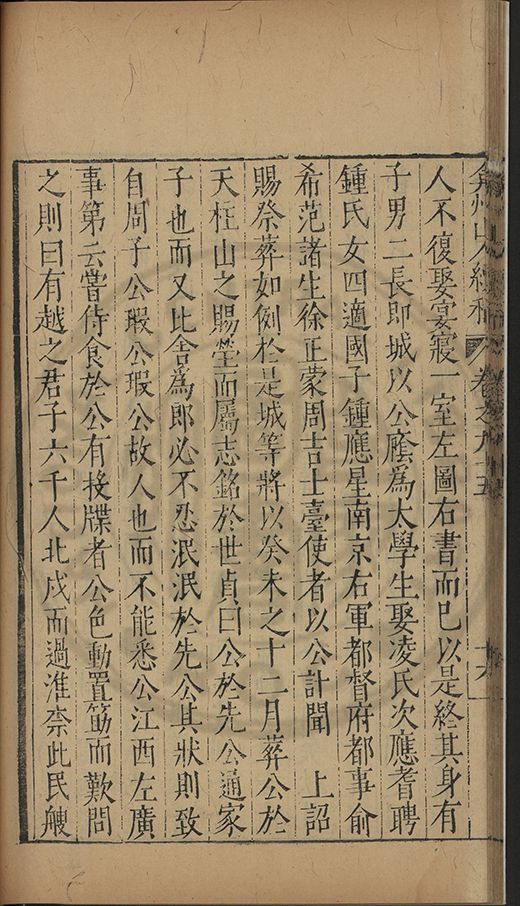 弇州山人續稿 卷之九十五 十六
人不復娶宴寢一室左圖右書而已以是終其身有
子男二長即城以公廕爲太學生娶凌氏次應耆聘
鍾氏女四適國子鍾應星南京右軍都督府都事俞
希范諸生徐正蒙周吉士臺使者以公訃聞 上詔
賜祭葬如例於是城等將以癸未之十二月葬公於
天柱山之賜塋而屬志銘於世貞曰公於先公通家
子也而又比舍爲郎必不忍泯泯於先公其狀則致
自周子公瑕公瑕公故人也而不能悉公江西左廣
事第云嘗侍食於公有按牒者公色動置筯而歎問
之則曰有越之君子六千人北戍而過淮柰此民艘